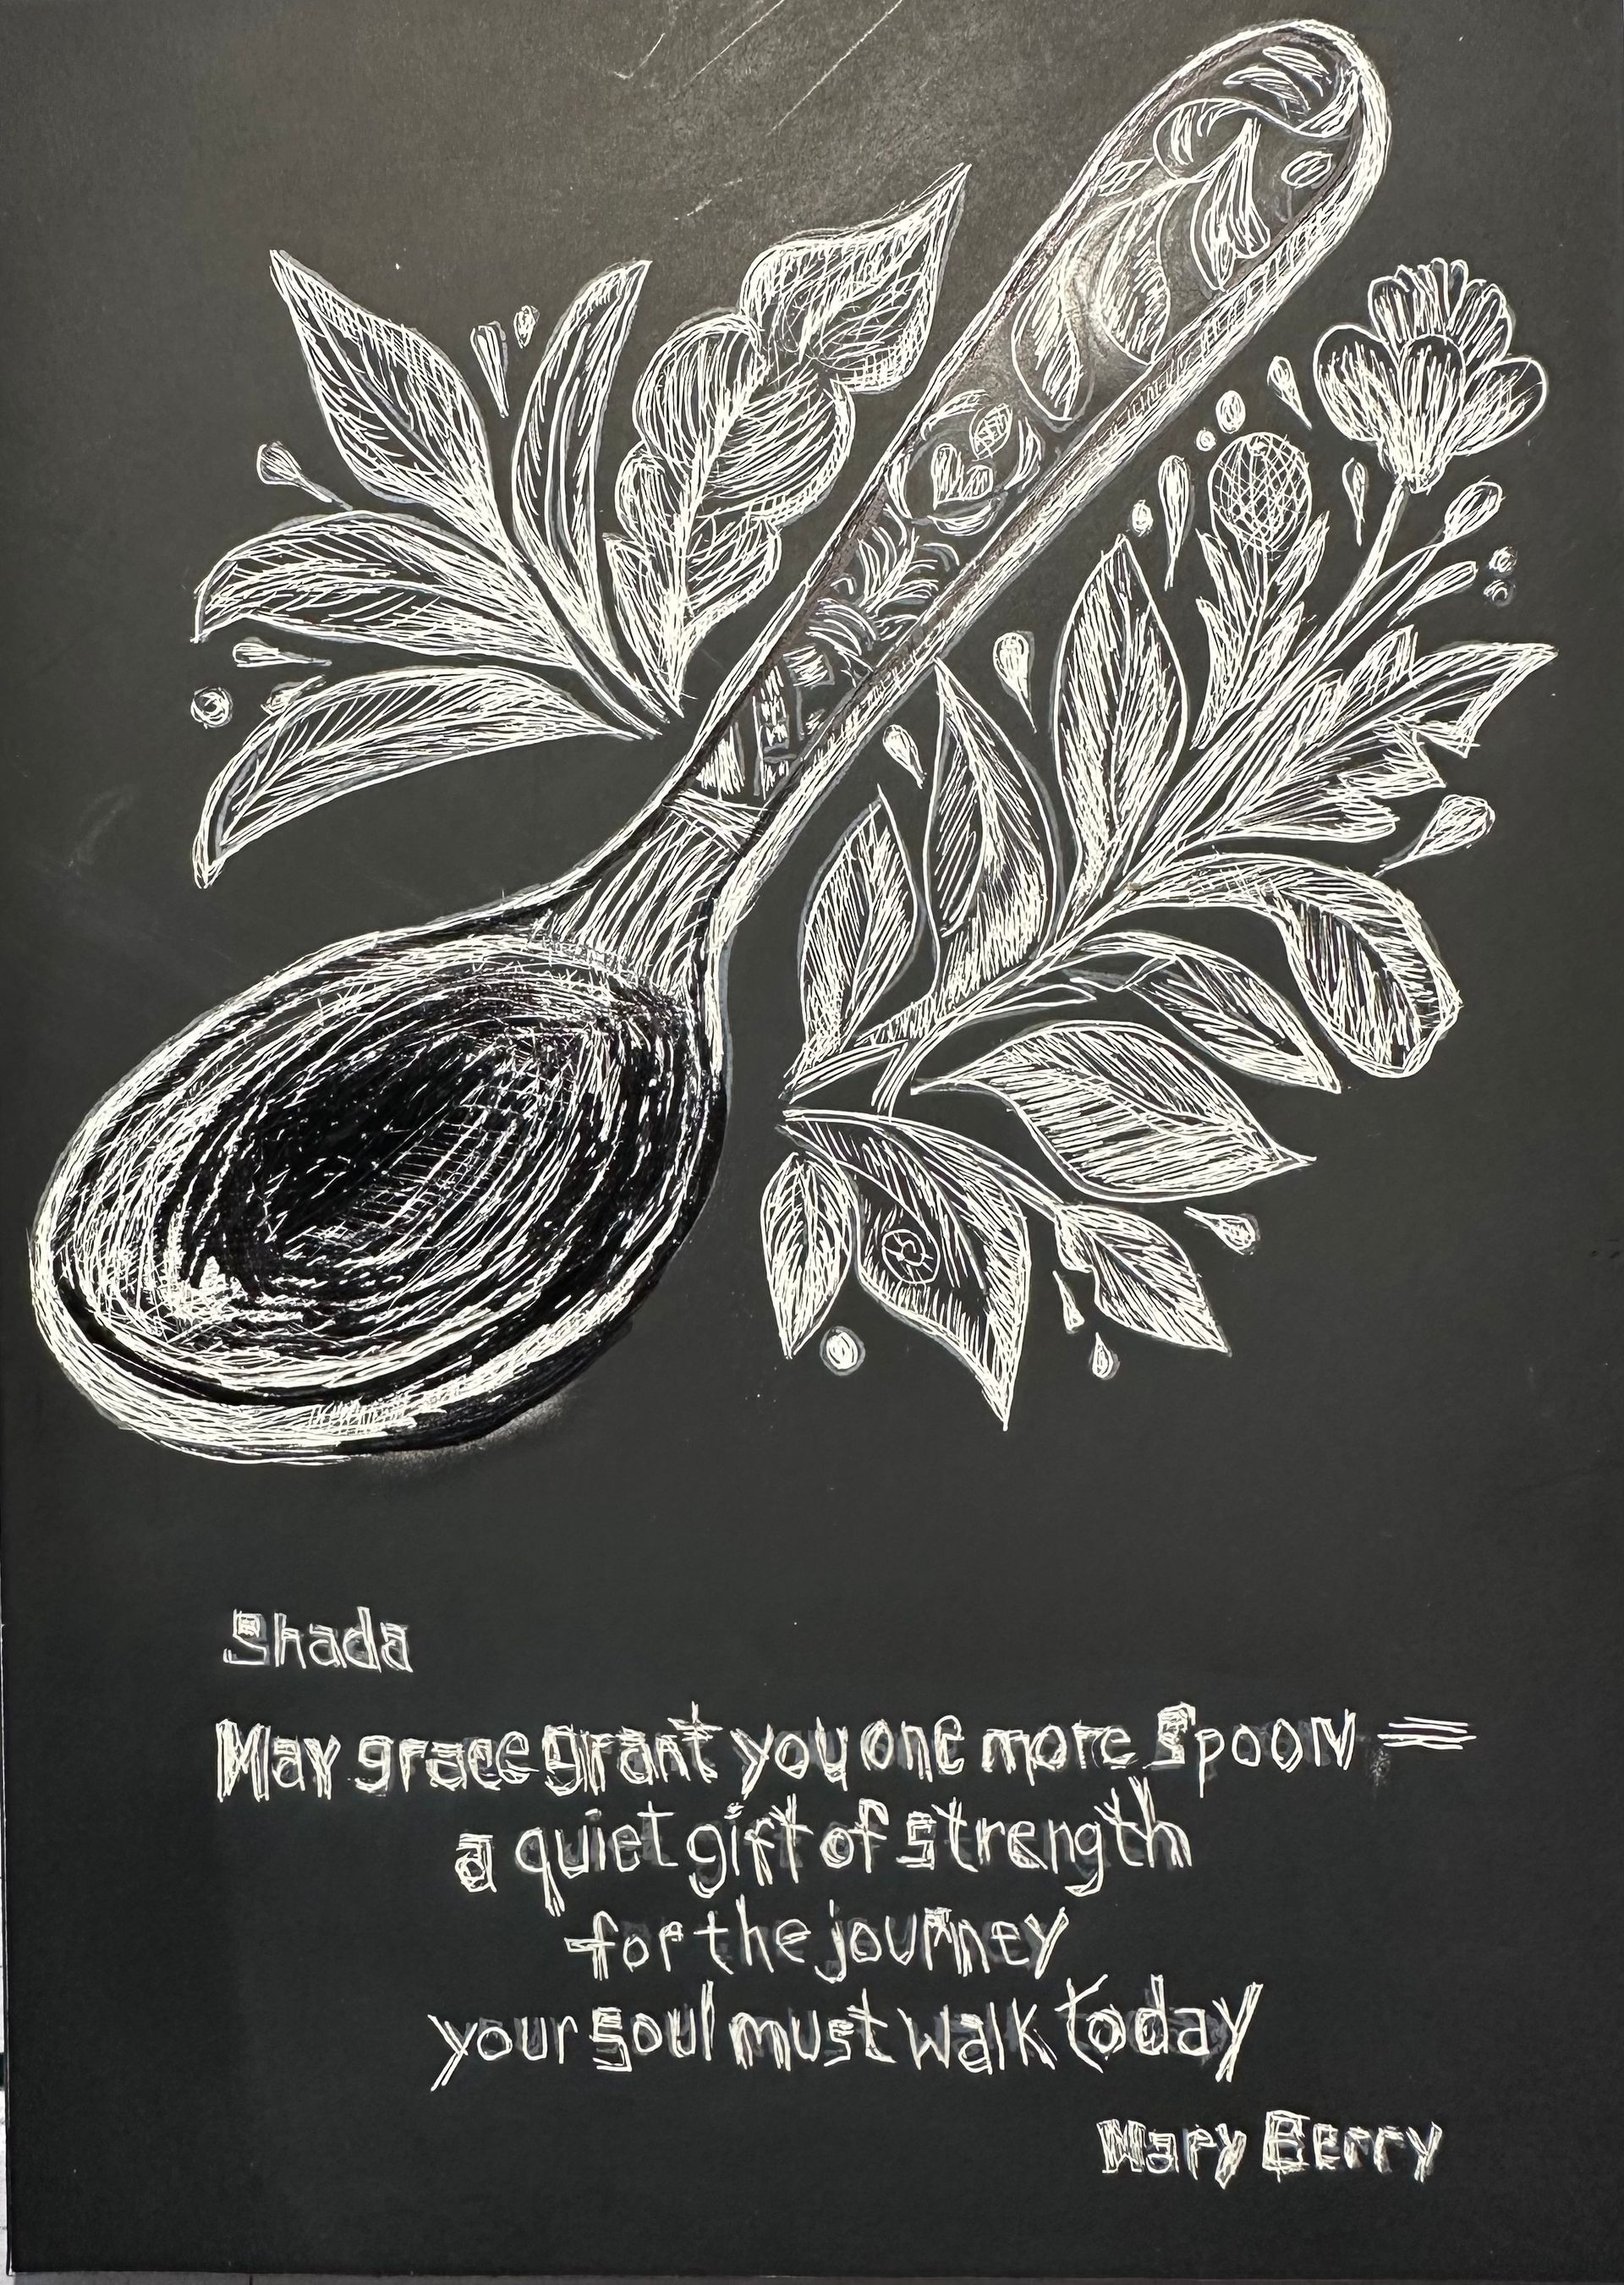 Shada
May grace grant you one more spoon —
a quiet gift of strength
for the journey
your soul must walk today
Mary Berry